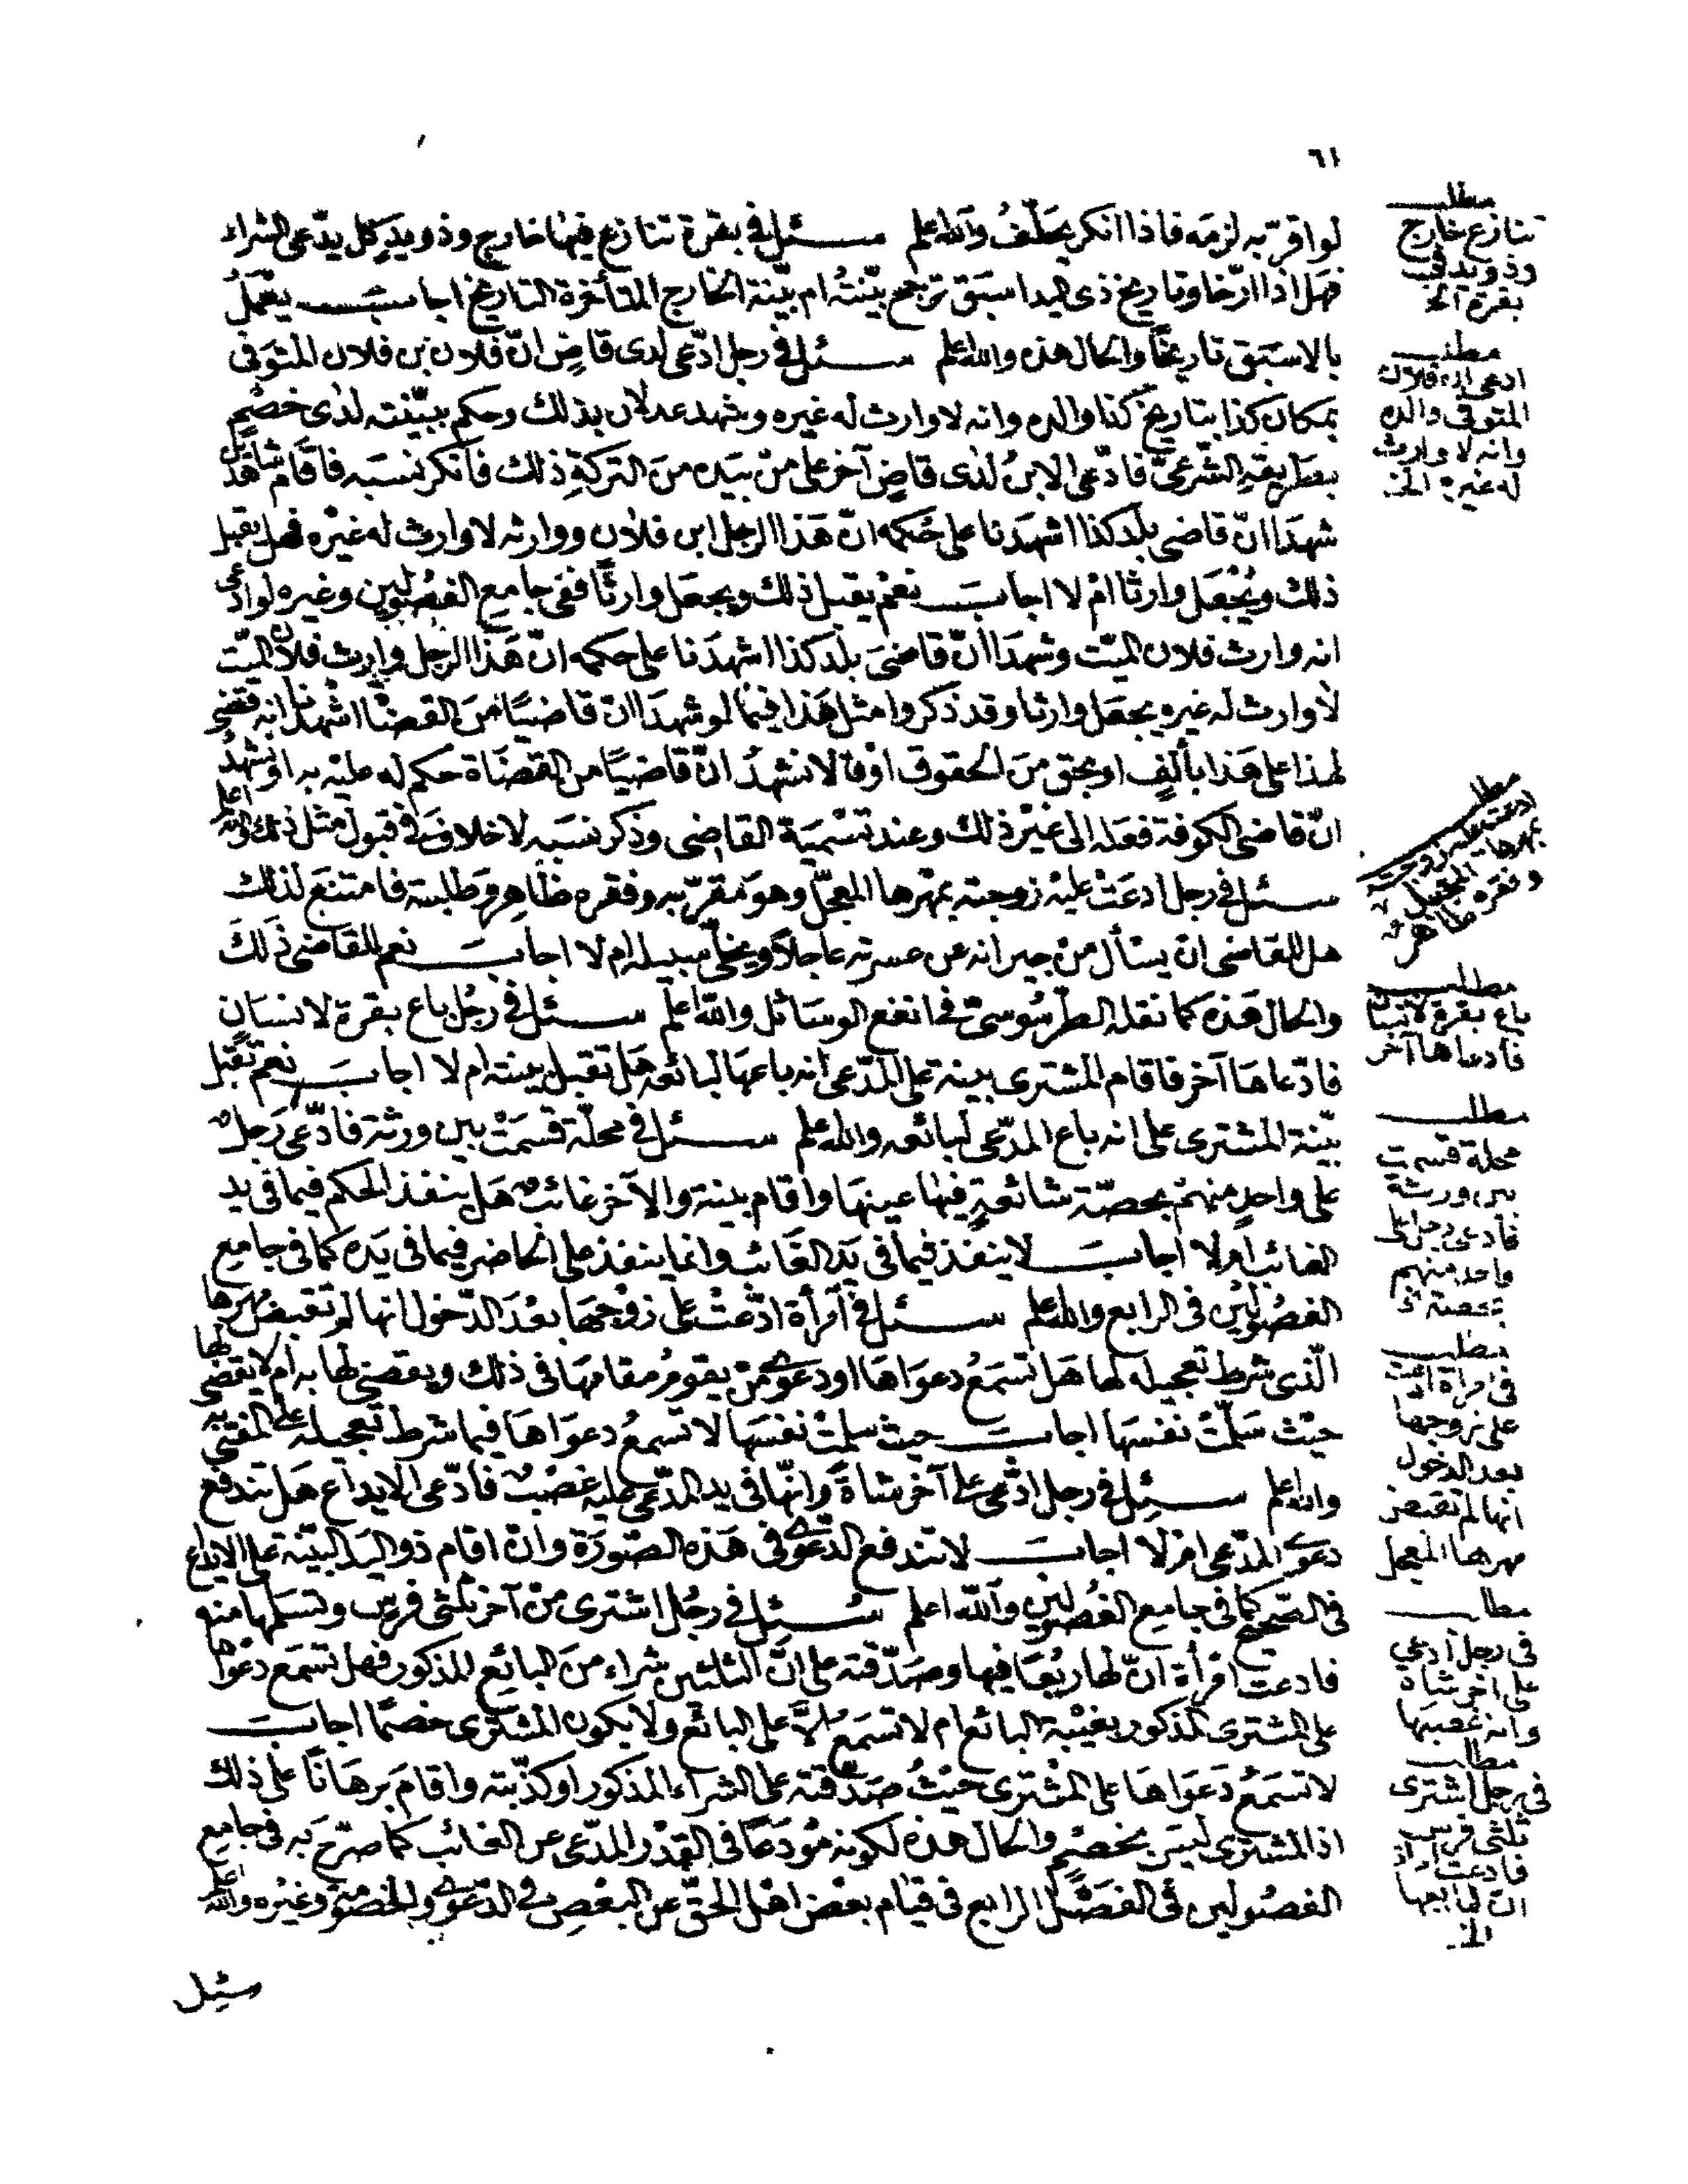 ٦١
لو اقرّ به لزمه فاذا انكر يحلّف والله اعلم سئل في بقرة تنازع فيها خارج وذو يد كل يدّعى الشراء
فهل اذا ارّخا وتاريخ ذى اليد اسبق ترجح بيّنته ام بيّنة الخارج المتأخرة التاريخ اجاب يعمل
بالاسبق تاريخاً والحال هذه والله اعلم سئل في رجل ادّعى لدى قاضٍ انّ فلان بن فلان المتوفى
بمكان كذا بتاريخ كذا والده وانه لا وارث له غيره وشهد عدلان بذلك وحكم ببيّنته لدى خصم
بطريقه الشرعىّ فادّعى الابن لدى قاضٍ آخر على من بيده من التركة ذلك فانكر نسبه فاقام شاهدين
شهدا انّ قاضى بلد كذا اشهدنا على حكمه انّ هذا الرجل ابن فلان ووارثه لا وارث له غيره فهل يقبل
ذلك ويجعل وارثا ام لا اجاب نعم يقبل ذلك ويجعل وارثاً ففى جامع الفصولين وغيره لو ادّعى
انه وارث فلان الميّت وشهدا انّ قاضى بلد كذا اشهدنا على حكمه انّ هذا الرجل وارث فلان الميّت
لا وارث له غيره يجعل وارثا وقد ذكروا مثل هذا فيما لو شهدا انّ قاضياً من القضاة اشهدنا انه قضى
لهذا على هذا بألف او بحق من الحقوق او قالا نشهد انّ قاضياً من القضاة حكم له عليه به او نشهد
انّ قاضى الكوفة فعله الى غير ذلك وعند تسمية القاضى وذكر نسبه لا خلاف في قبول مثل ذلك والله اعلم
سئل في رجل ادعت عليه زوجته بمهرها المعجّل وهو مقرّ به وفقره ظاهر وطلبته فامتنع لذلك
هل للقاضى ان يسأل من جيرانه عن عسرته عاجلاً ويخلى سبيله ام لا اجاب نعم للقاضى ذلك
والحال هذه كما نقله الطرسوسىّ فى انفع الوسائل والله اعلم سئل في رجل باع بقرة لانسان
فادّعاها آخر فاقام المشترى بينة على المدّعى انه باعها لبائعه هل تقبل بينته ام لا اجاب نعم تقبل
بيّنة المشترى على انه باع المدّعى لبائعه والله اعلم سئل في محلّة قسمت بين ورثة فادّعى رجل
على واحد منهم بحصّة شائعة فيها عينها واقام بينة والآخر غائب هل ينفذ الحكم فيما فى يد
الغائب ام لا اجاب لا ينفذ فيما فى يد الغائب وانما ينفذ على الحاضر فيما فى يده كما فى جامع
الفصولين فى الرابع والله اعلم سئل في امرأة ادّعت على زوجها بعد الدّخول انها لم تقبض مهرها
الّذى شرط تعجيله لها هل تسمع دعواها او دعوى من يقوم مقامها فى ذلك ويقضى لها به ام لا يقضى لها
حيث سلّمت نفسها اجاب حيث سلمت نفسها لا تسمع دعواها فيما شرط تعجيله على المفتى به
والله اعلم سئل في رجل ادّعى على آخر شاة وانّها فى يد المدّعى عليه غصب فادّعى الايداع هل تندفع
دعوى المدّعى ام لا اجاب لا تندفع الدعوى فى هذه الصّورة وان اقام ذو اليد البيّنة على الايداع
فى الصّحيح كما فى جامع الفصولين والله اعلم سئل في رجل اشترى من آخر ثلثى فرس وتسلمها منه
فادعت امرأة انّ لها ربعا فيها وصدّقته على انّ الثلثين شراء من البائع المذكور فهل تسمع دعواها
على المشترى المذكور بغيبة البائع ام لا تسمع الاّ على البائع ولا يكون المشترى خصمًا اجاب
لا تسمع دعواها على المشترى حيث صدّقته على الشراء المذكور او كذّبته واقام برهاناً على ذلك
اذ المشترى ليس بخصم والحال هذه لكونه مودعاً فى القدر المدّعى عن الغائب كما صرّح به فى جامع
الفصولين فى الفصل الرابع فى قيام بعض اهل الحقّ عن البعض في الدعوى والخصومة وغيره والله اعلم
سئل
مطلب
تنازع خارج
وذو يد فى
بقرة الخ
مطلب
ادعى ان فلان
المتوفى والده
وانه لا وارث
له غيره الخ
مطلب
ادعت عليه زوجته
بمهرها المعجل
وفقره ظاهر
مطلب
باع بقرة لانسان
فادعاها آخر
مطلب
محلة قسمت
بين ورثة
فادعى رجل على
واحد منهم
بحصة الخ
مطلب
فى امرأة ادعت
على زوجها
بعد الدخول
انها لم تقبض
مهرها المعجل
مطلب
فى رجل ادعى
على آخر شاة
وانه غصبها
مطلب
فى رجل اشترى
ثلثى فرس
فادعت امرأة
ان لها ربعها
الخ